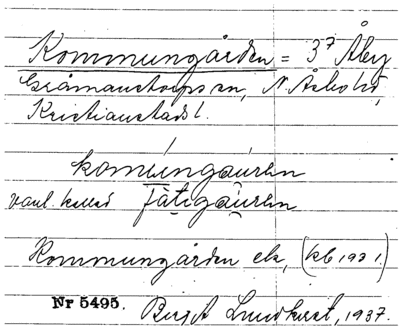 Kommungården = 3⁷ Åby
Gråmanstorps sn, N. Åsbo hd,
Kristianstads l.
komúngáuren
vanl. kallad fátigåuren
Kommungården ek, (kb 1931.)
Nr 5495. Birgit Lundkvist, 1937.